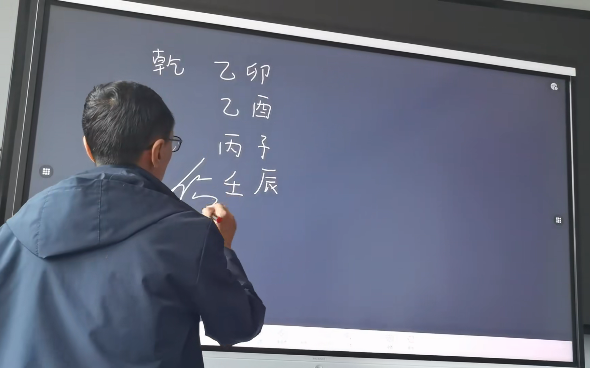 乾 乙卯
乙酉
丙子
壬辰